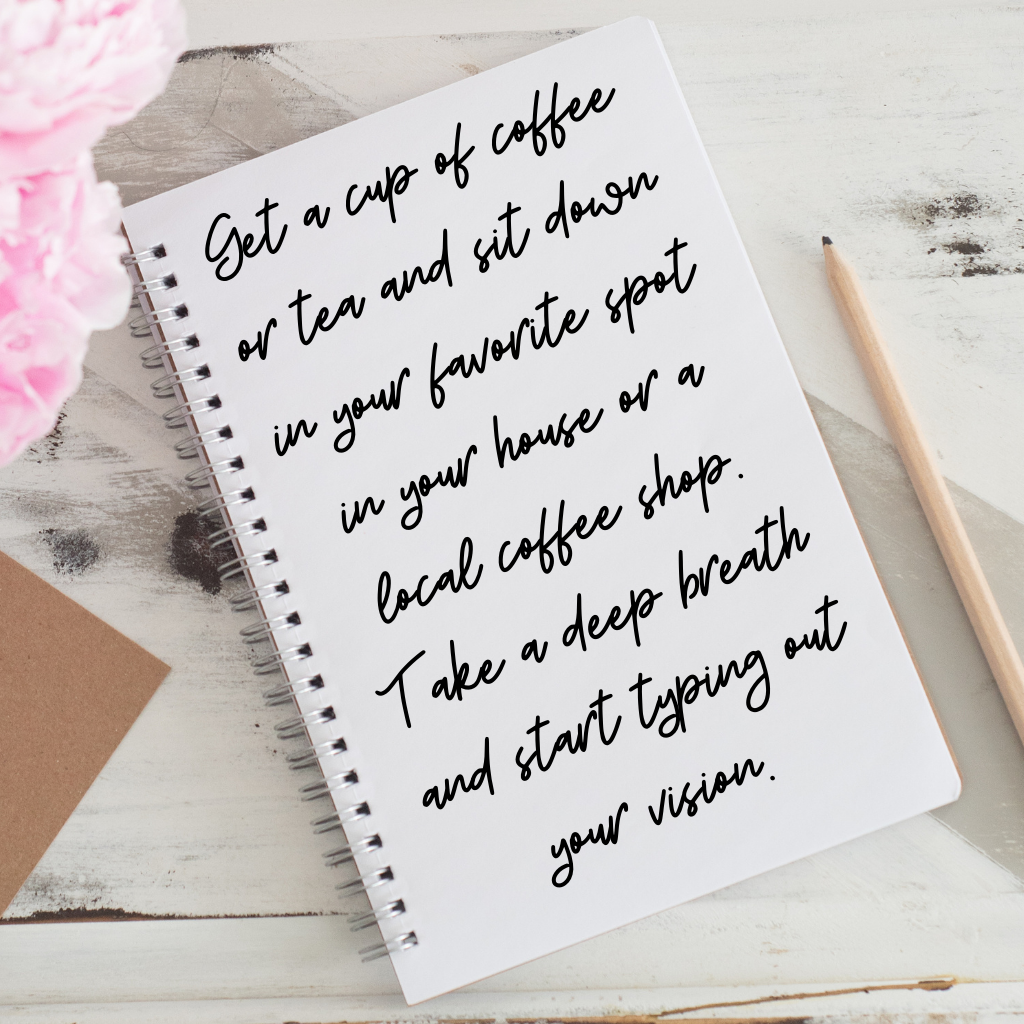 Get a cup of coffee
or tea and sit down
in your favorite spot
in your house or a
local coffee shop.
Take a deep breath
and start typing out
your vision.